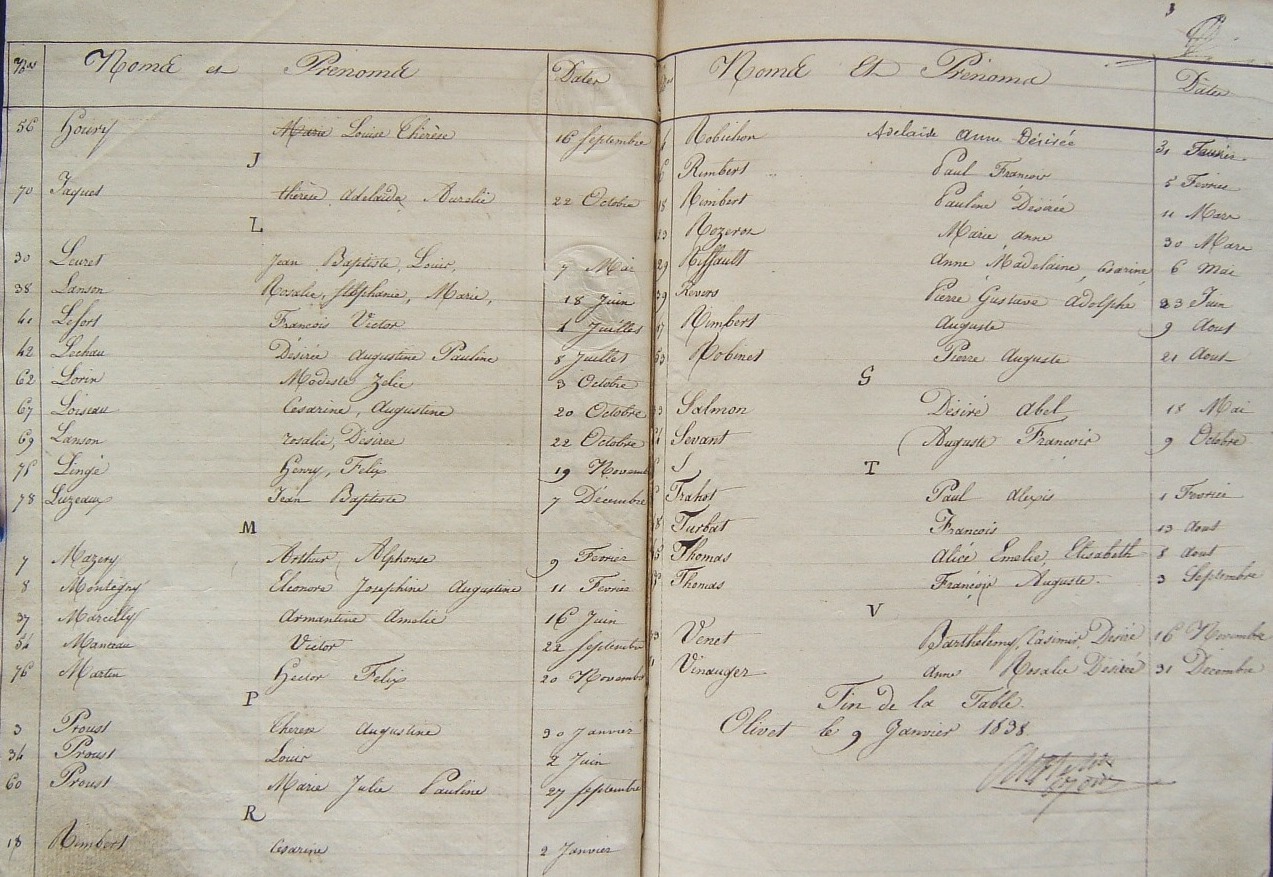 Nos Noms et Prénoms Dates
56 Houry Marie Louise Thérèse 16 Septembre
J
70 Jaques thérèse Adelaïda Aurelie 22 Octobre
L
30 Leuret Jean Baptiste, Louis, 7 Mai
38 Lanson Rosalie, Stéphanie, Marie, 18 Juin
41 Lefort François Victor 1 Juillet
42 Lechau Désirée Augustine Pauline 8 Juillet
62 Lorin Modeste Zelie 3 Octobre
67 Loiseau Cesarine, Augustine 20 Octobre
69 Lanson rosalie, Desiree 22 Octobre
75 Lingé Henry, Felix 19 Novemb
78 Luzeaux Jean Baptiste 7 Décembre
M
7 Mazery Arthur Alphonse 9 Fevrier
8 Montigny Eleonore Josephine Augustine 11 Fevrier
37 Marcilly Armantine Amelie 16 Juin
54 Manceau Victor 22 Septembre
76 Martin Hector Felix 20 Novemb
P
3 Proust Therese Augustine 30 Janvier
34 Proust Louis 2 Juin
60 Proust Marie Julie Pauline 27 Septembre
R
18 Rimbert Cesarine 2 Janvier
Noms Et Prénoms Dates
Robichon Adelaide Anne Désirée 31
Rimbert Paul François 5 Fevrier
18 Rimbert Pauline Désirée 11 Mars
23 Rozeron Marie anne 30 Mars
29 Riffault Anne Madelaine, Cesarine 6 Mai
39 Revers Pierre Gustave Adolphe 23 Juin
Rimbert Auguste 9 Aout
Robinet Pierre Auguste 21 Aout
S
33 Salmon Désiré Abel 18 Mai
Sevant Auguste François 9 Octobre
T
Trahot Paul Alexis 1 Fevrier
Turbat François 13 Aout
Thomas Alice Emelie, Elisabeth 8 Aout
Thomas François Auguste 3 Septembre
V
Venet Barthelemy, Casimir, Desiré 16 Novembre
Vinauger Anne Rosalie Désirée 31 Décembre
Fin de la Table.
Olivet le 9 Janvier 1838